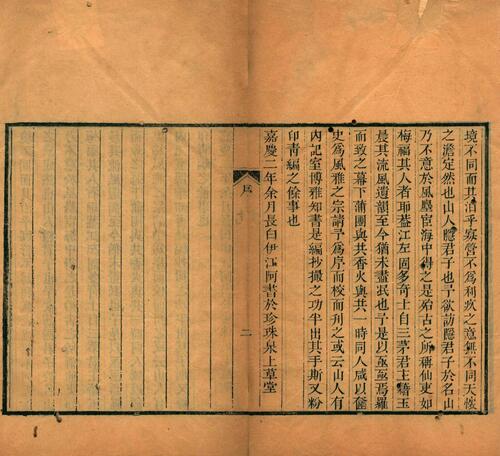 境不同而其泊乎寂營不為利疚之意無不同天懷
之澹定然也山人隱君子也予欲訪隱君子於名山
乃不意於風塵宦海中得之是殆古之所稱仙吏如
梅福其人者耶葢江左固多奇士自三茅君主籍玉
晨其流風遺韻至今猶未盡泯也予是以亟亟焉羅
而致之幕下蒲團與共香火與共一時同人咸以奮
史為風雅之宗請予為序而校而刋之或云山人有
內記室博雅知書是編抄撮之功半出其手斯又粉
印青編之餘事也
嘉慶二年余月長白伊江阿書於珍珠泉上草堂
序
二